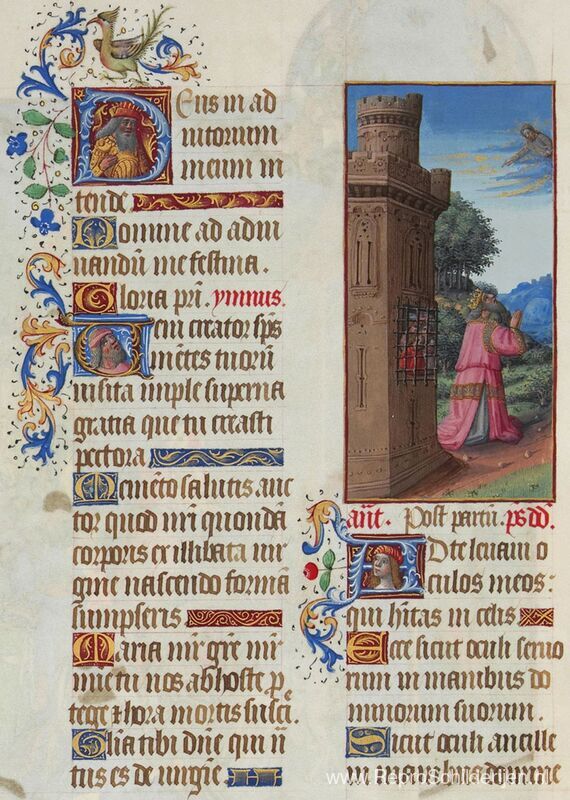 Deus in ad
iutorium
meum in
tende
Domine ad adiu
uandū me festina.
Gloria pri. ymnus.
Ueni creator sps
mētes tuorū
uisita imple superna
gratia que tu creasti
pectora
Memēto salutis auc
tor quod nrī quondā
corporis ex illibata uir
gine nascendo formā
sumpseris
Maria mr gre mr
mie tu nos ab hoste p
tege et hora mortis susci.
Glia tibi dne qui n
tus es de uirgie
ant. Post partū. ps dd.
Ad te leuaui o
culos meos:
qui hītas in celis
Ecce sicut oculi seruo
rum in manibus do
minorum suorum.
Sicut oculi ancille
in manibus domine
www.ReproSchilderijen.nl